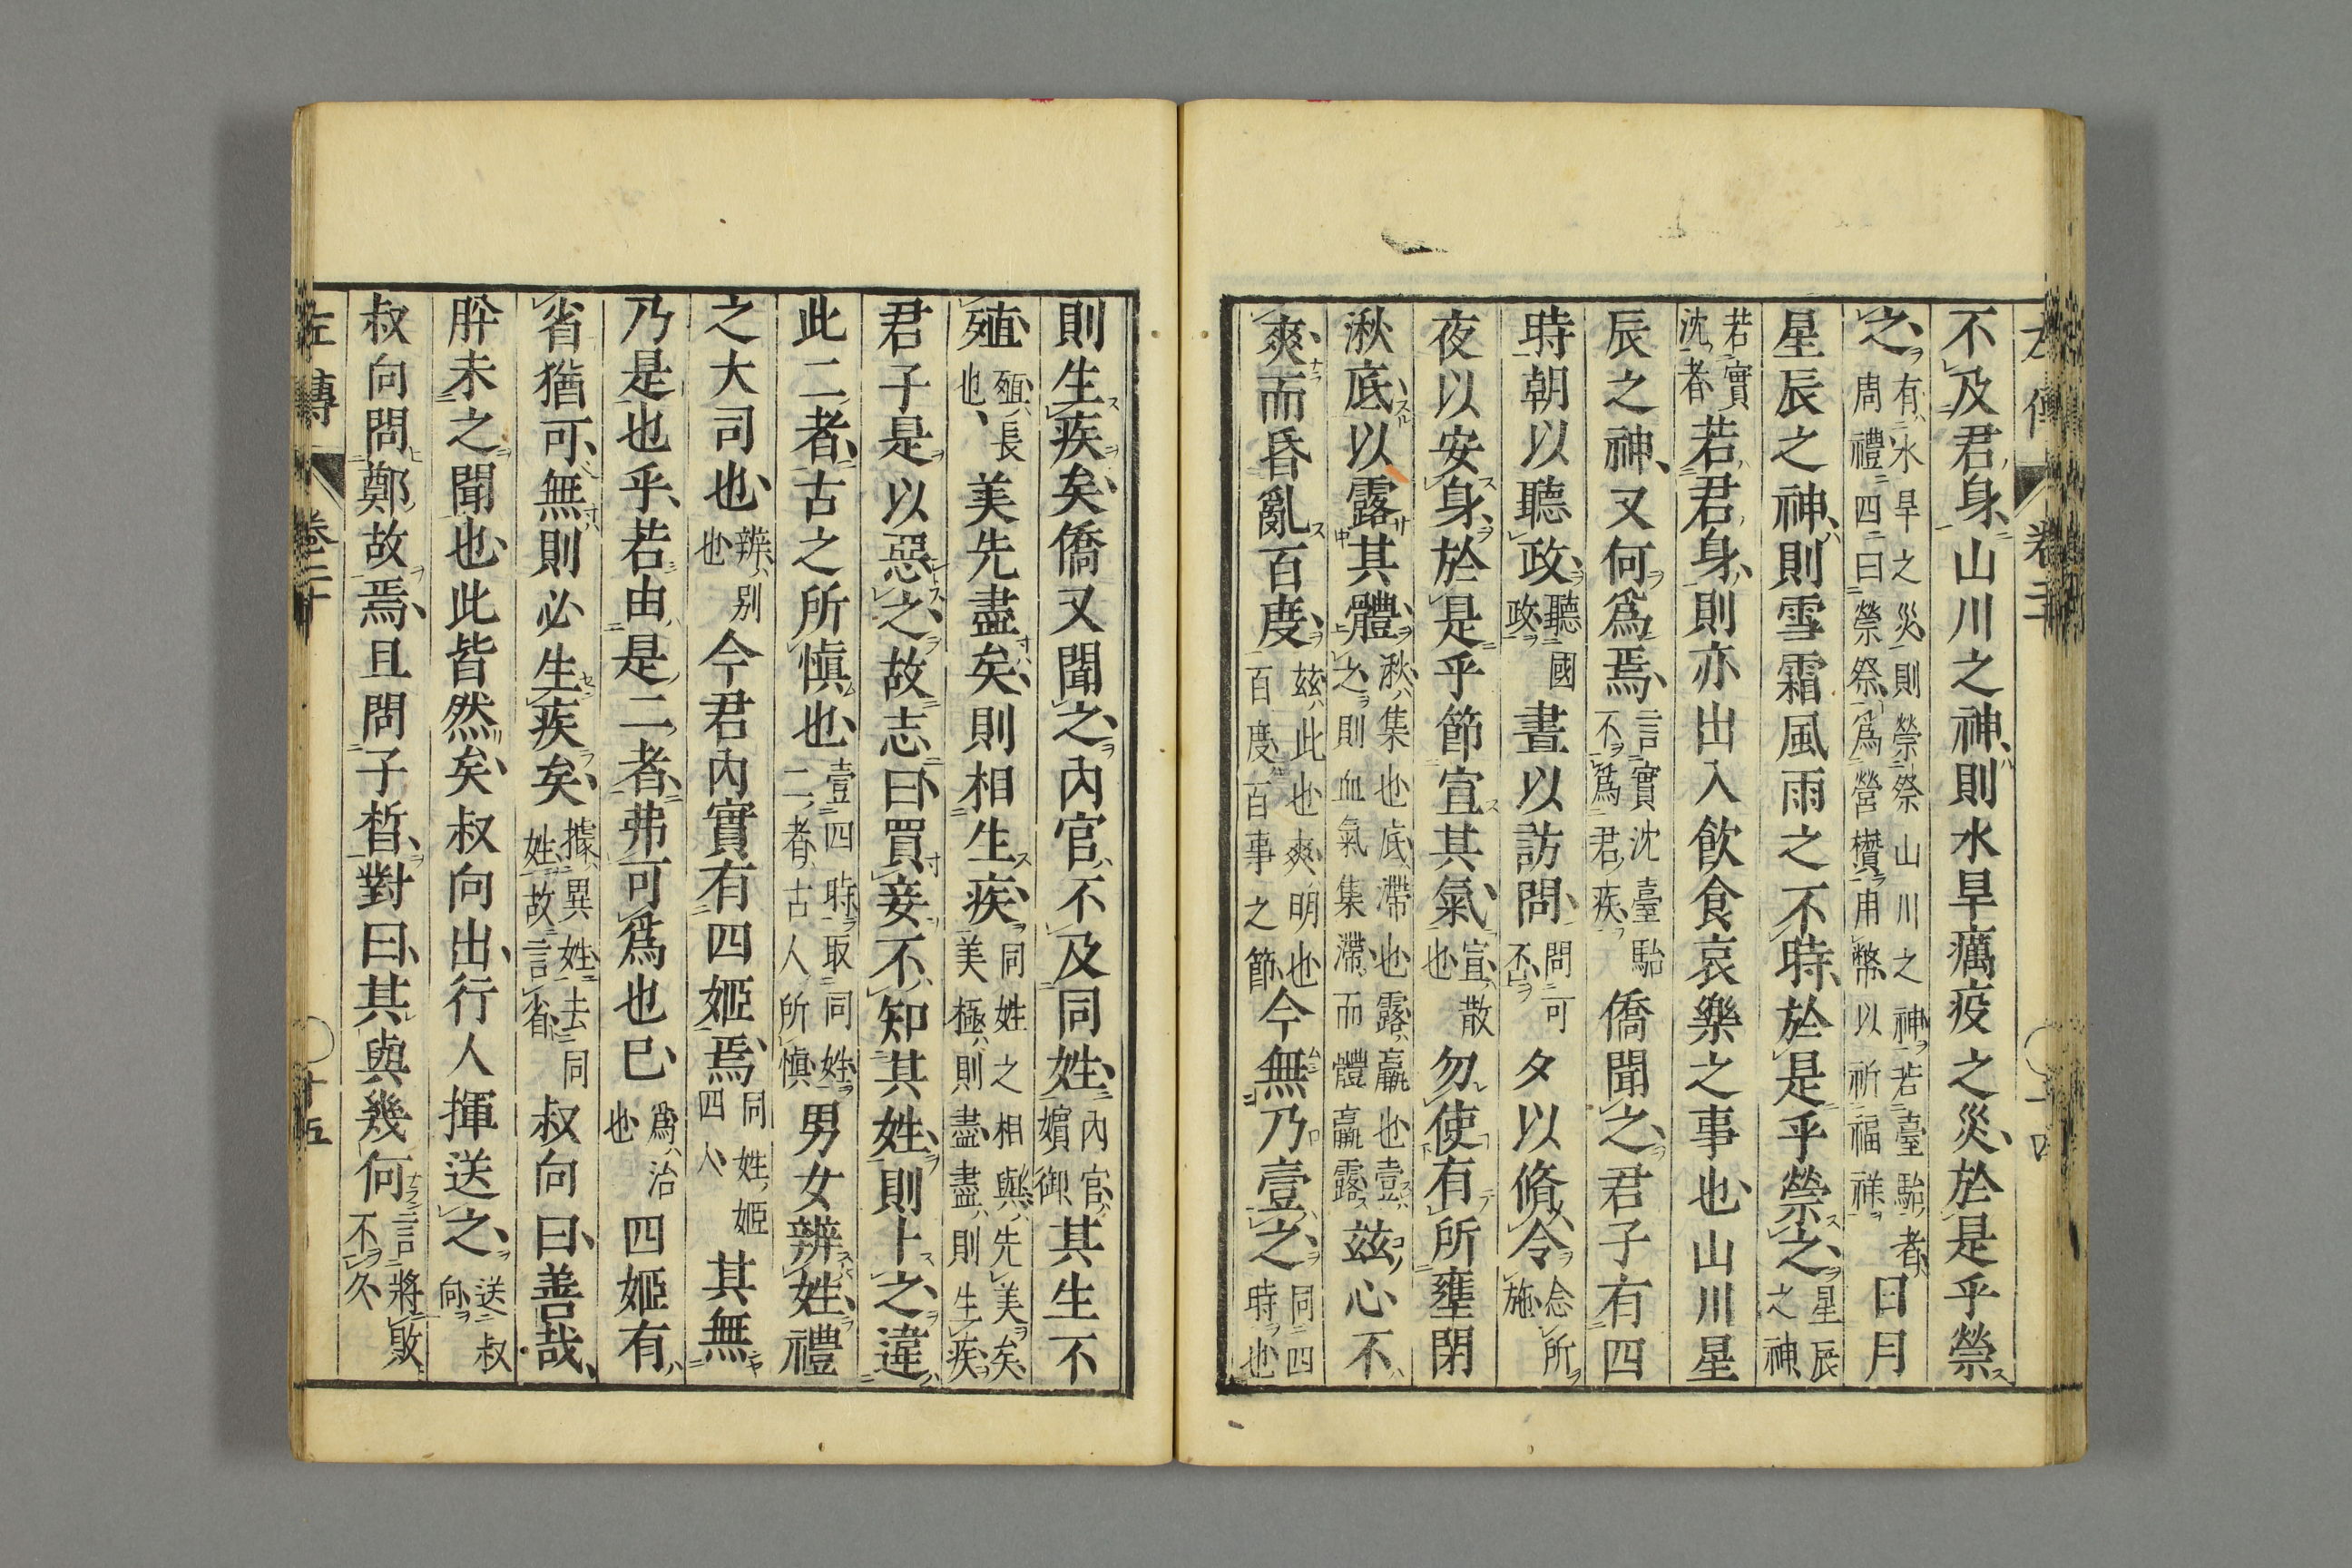 不及君身山川之神則水旱癘疫之災於是乎禜
之有水旱之災則禜祭山川之神若臺駘者周禮四曰禜祭爲營欑用幣以祈福祥日月
星辰之神則雪霜風雨之不時於是乎禜之星辰之神
若實沈者若君身則亦出入飲食哀樂之事也山川星
辰之神又何爲焉言實沈臺駘不爲君疾僑聞之君子有四
時朝以聽政聽國政晝以訪問問可不夕以脩令念所施
夜以安身於是乎節宣其氣宣散也勿使有所壅閉
湫底以露其體湫集也底滯也露羸也壹之則血氣集滯而體羸露玆心不
爽而昏亂百度玆此也爽明也百度百事之節今無乃壹之同四時也
則生疾矣僑又聞之內官不及同姓內官嬪御其生不
殖殖長也美先盡矣則相生疾同姓之相與先美矣美極則盡盡則生疾
君子是以惡之故志曰買妾不知其姓則卜之違
此二者古之所愼也壹四時取同姓二者古人所愼男女辨姓禮
之大司也辨別也今君內實有四姬焉同姓姬四人其無
乃是也乎若由是二者弗可爲也已爲治也四姬有
省猶可無則必生疾矣據異姓去同姓故言省叔向曰善哉
肸未之聞也此皆然矣叔向出行人揮送之送叔向
叔向問鄭故焉且問子晳對曰其與幾何言將敗不久
左傳 卷二十 ○十五